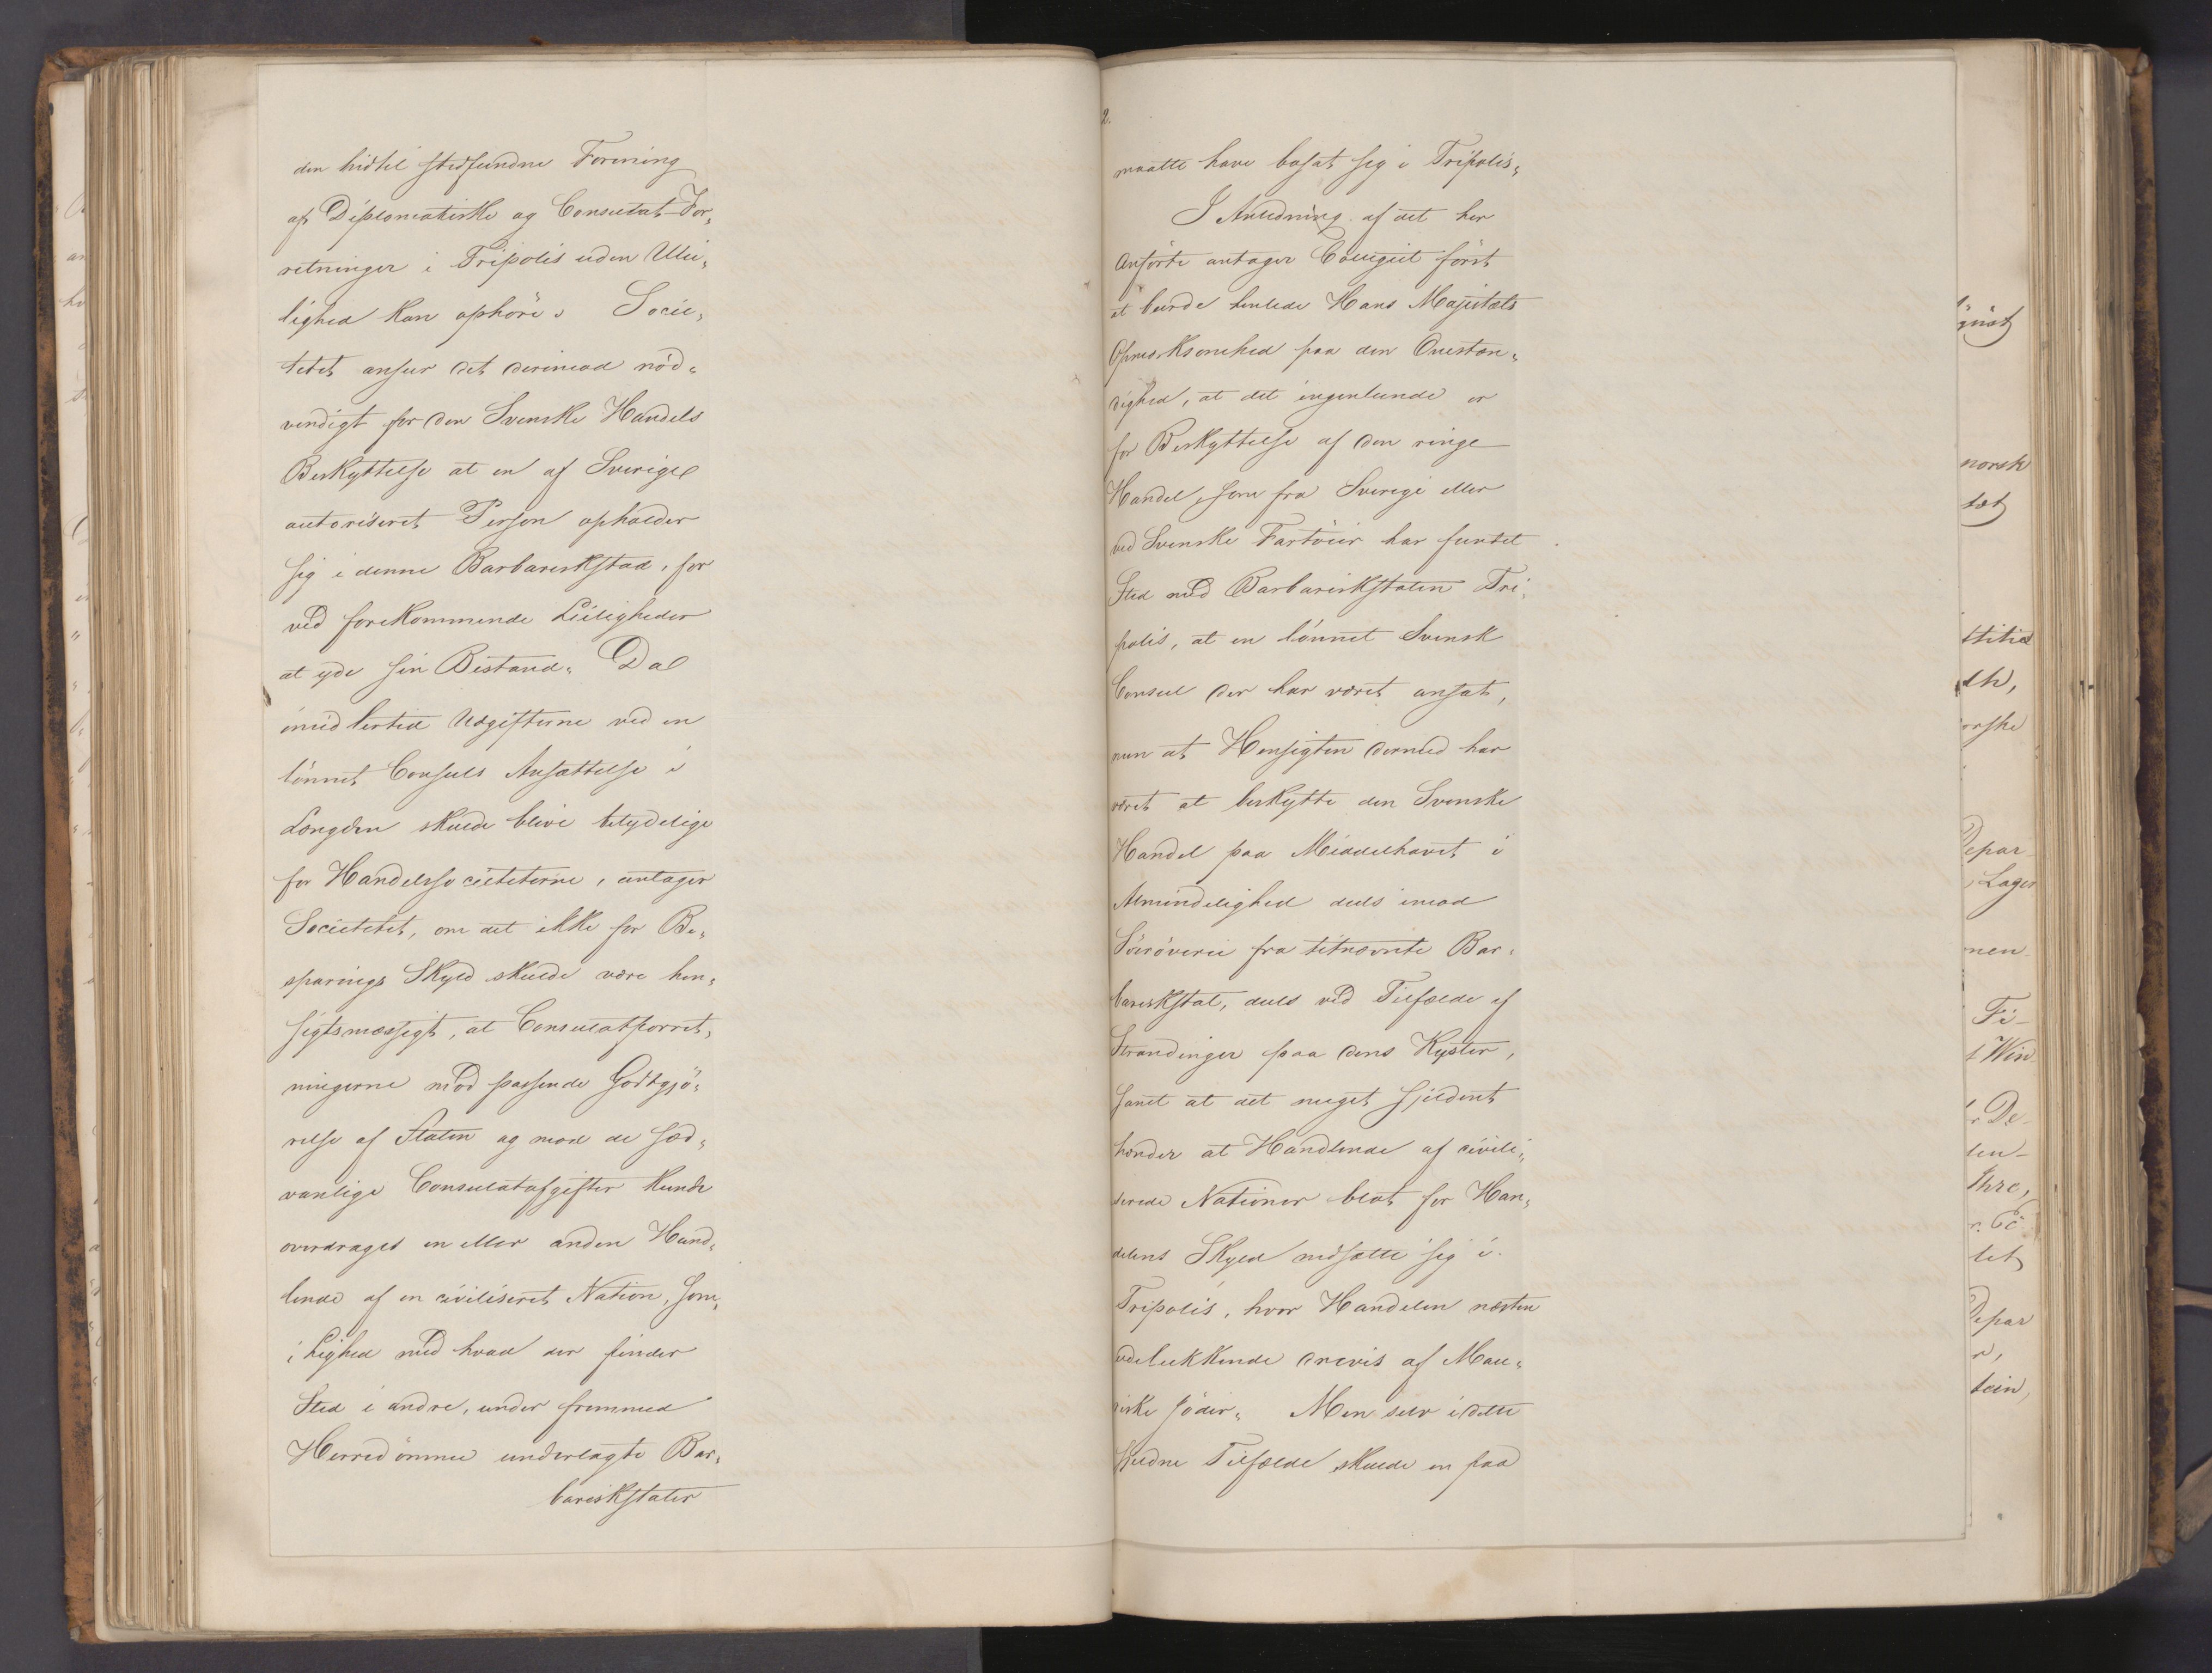 den hidtil stedfundne Forening
af Diplomatiske og Consulat-For„
retninger i Tripolis uden Ulei„
lighed kan ophöre. Socie„
tetet anseer det derimod nöd„
vendigt for den Svenske Handels
Beskyttelse at en af Sverige
autoriseret Person opholder
sig i denne Barbareskstad, for
ved forekommende Leiligheder
at yde sin Bistand. Da
imidlertid Udgifterne ved en
lönnet Consuls Ansættelse i
Længden skulde blive betydelige
for Handelssocieteterne, antager
Societetet, om det ikke for Be„
sparings Skyld skulde være hen„
sigtsmæssigt, at Consulatforret„
ningerne mod passende Godtgjö„
relse af Staten og mod de sæd„
vanlige Consulatafgifter kunde
overdrages en eller anden Hand„
lende af en civiliseret Nation, som,
i Lighed med hvad der finder
Sted i andre, under fremmed
Herredömme underlagte Bar„
bareskstater
2.
maatte have bosat sig i Tripolis„
I Anledning af det her
Anförte antager Collegiet först
at burde henlede Hans Majestæts
Opmærksomhed paa den Omstæn„
dighed, at det ingenlunde er
for Beskyttelse af den ringe
Handel, som fra Sverige eller
ved Svenske Fartöier har fundet
Sted med Barbareskstaten Tri„
polis, at en lönnet Svensk
Consul der har været ansat,
men at Hensigten dermed har
været at beskytte den Svenske
Handel paa Middelhavet i
Almindelighed deels imod
Söröverie fra bemeldte Bar„
bareskstat, deels ved Tilfælde af
Strandinger paa dens Kyster,
samt at det meget sjeldent
hænder at Handlende af civili„
serede Nationer blot for Han„
delens Skyld nedsætte sig i
Tripolis, hvor Handelen næsten
udelukkende drives af Mau„
riske Jöder„ Men selv i dette
sieldne Tilfælde skulde en paa
gust
norsk
tet
stitie
orske
Depar
Lager
men
Fi-
t Win
r De
len-
Ihre,
tet
Depar
r,
tein